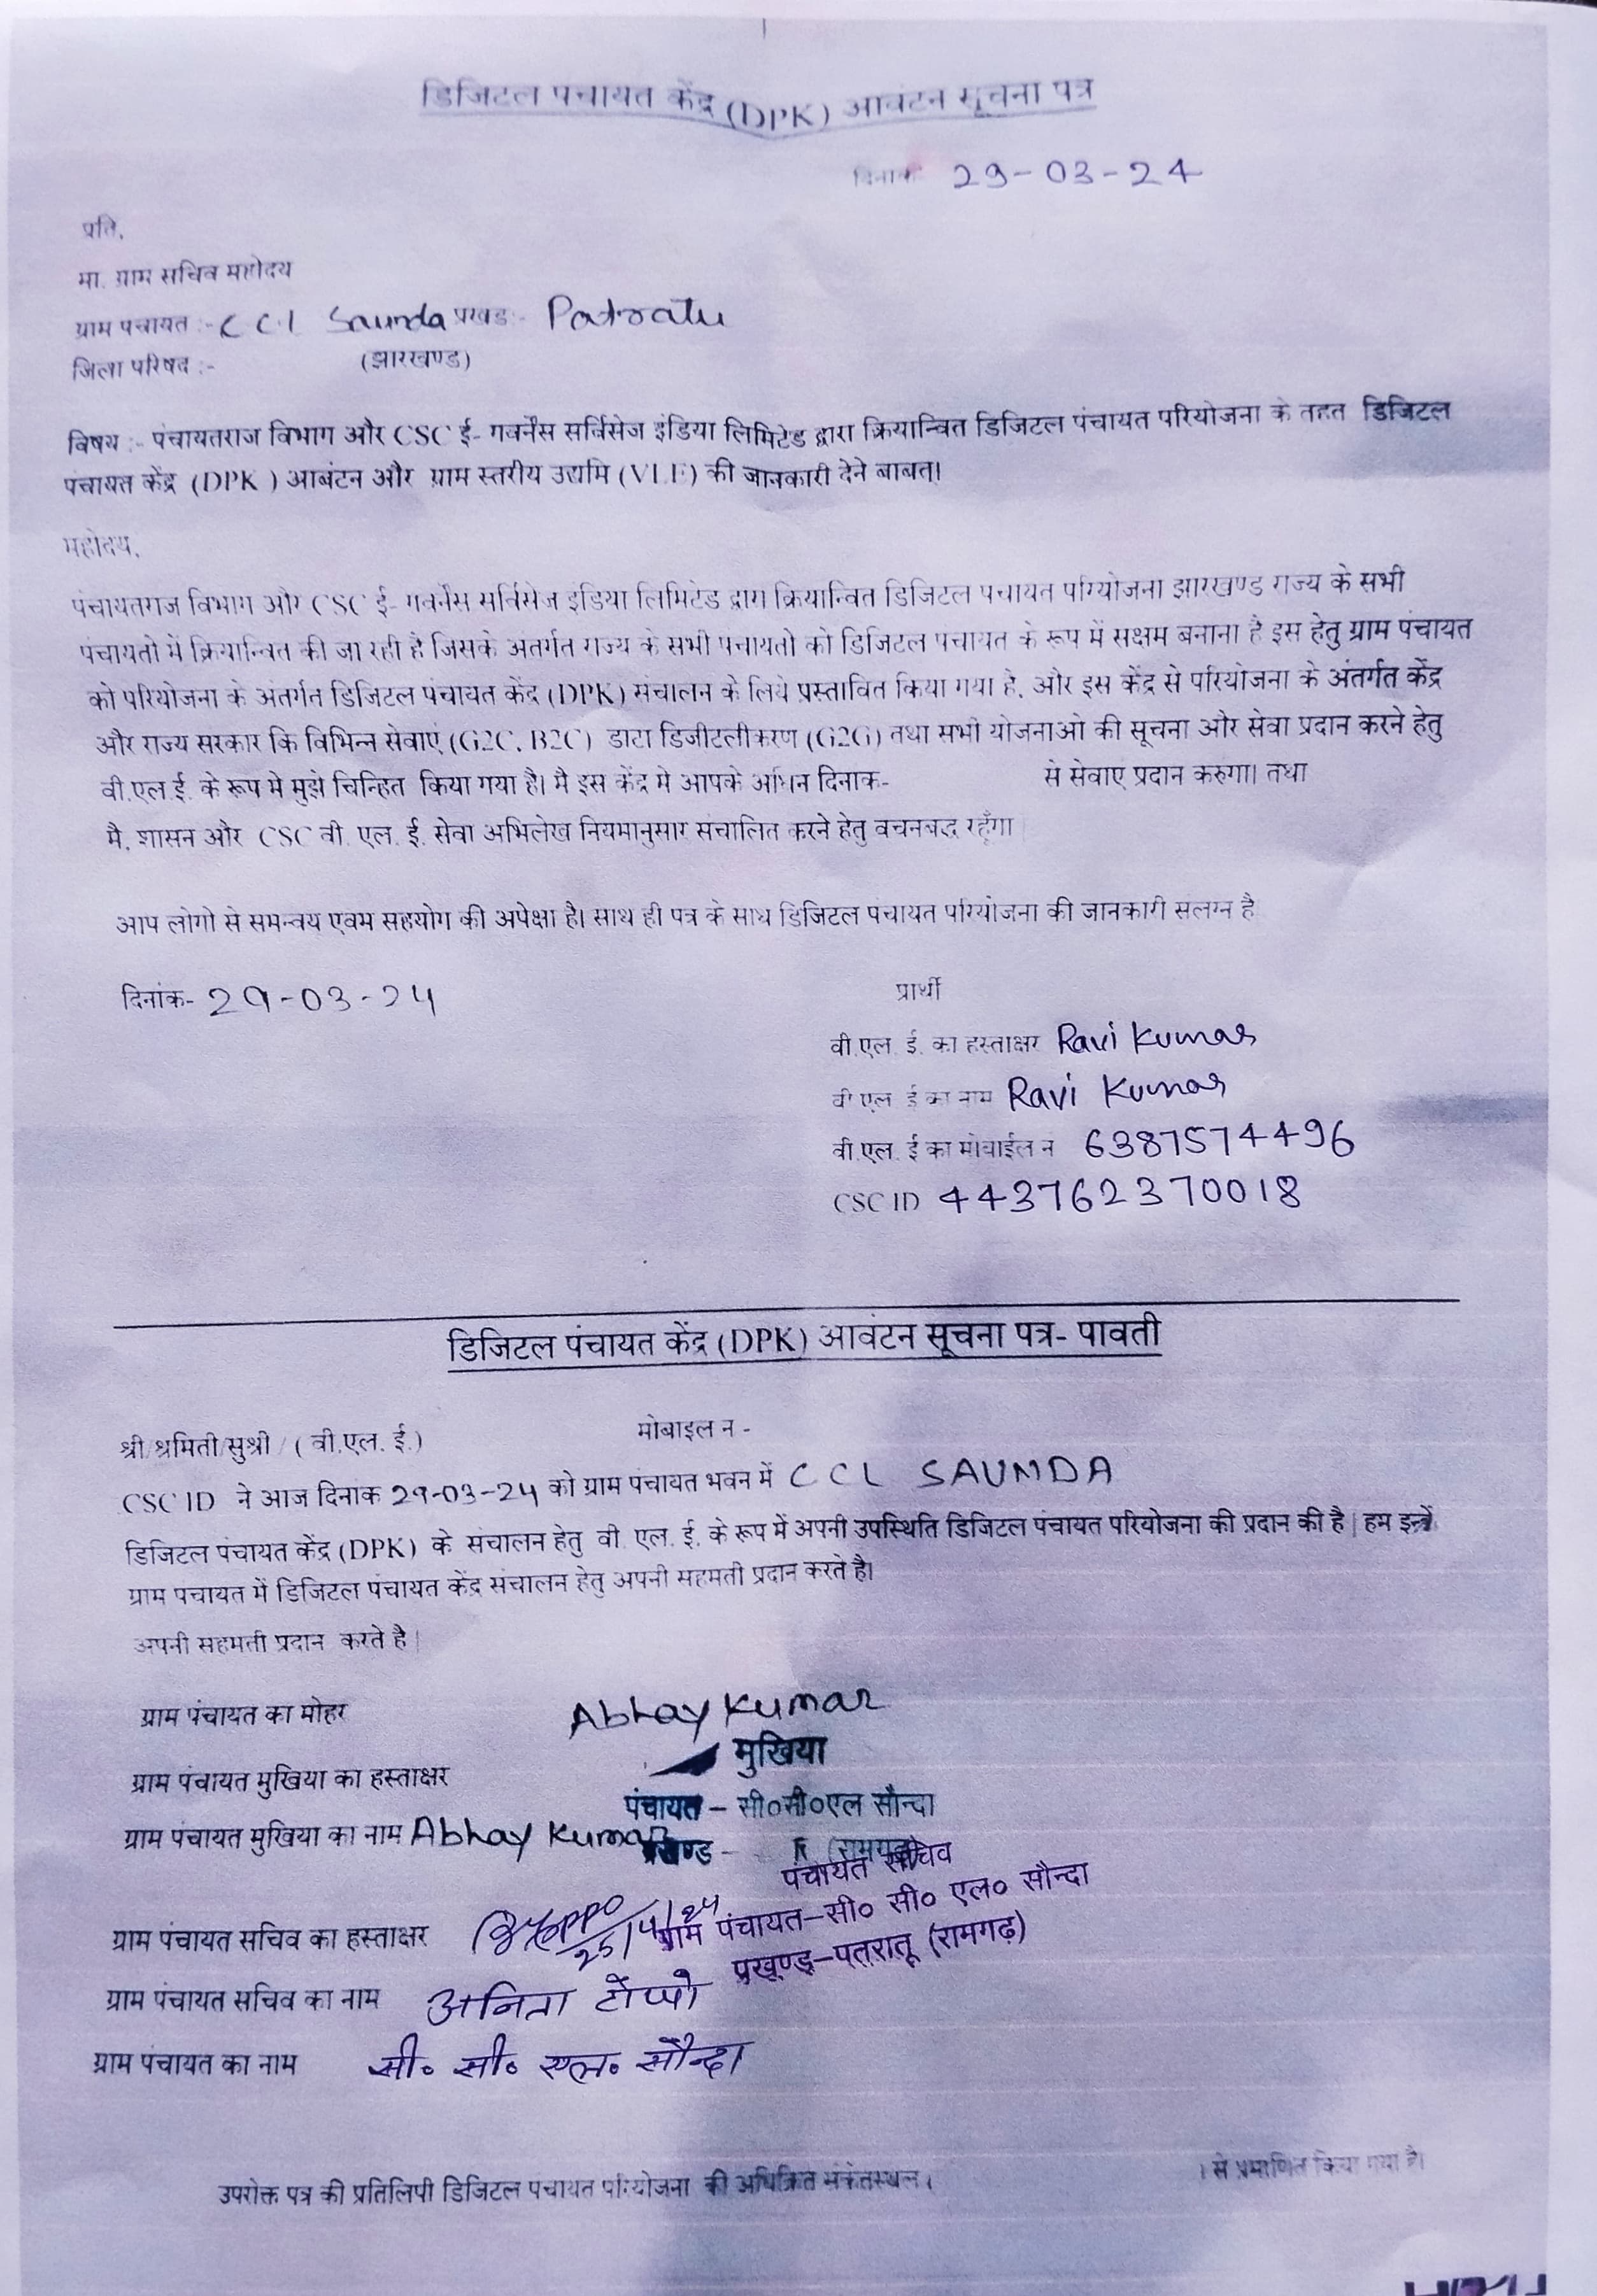 डिजिटल पंचायत केंद्र (DPK) आवंटन सूचना पत्र
दिनांक 29-03-24
प्रति,
मा. ग्राम सचिव महोदय
ग्राम पंचायत :- CCL Saunda प्रखंड:- Patratu
जिला परिषद :- (झारखण्ड)
विषय :- पंचायतराज विभाग और CSC ई- गवर्नेंस सर्विसेज इंडिया लिमिटेड द्वारा क्रियान्वित डिजिटल पंचायत परियोजना के तहत डिजिटल
पंचायत केंद्र (DPK ) आबंटन और ग्राम स्तरीय उद्यमि (VLE) की जानकारी देने बाबत्।
महोदय,
पंचायतराज विभाग और CSC ई- गवर्नेंस सर्विसेज इंडिया लिमिटेड द्वारा क्रियान्वित डिजिटल पंचायत परियोजना झारखण्ड राज्य के सभी
पंचायतो में क्रियान्वित की जा रही है जिसके अंतर्गत राज्य के सभी पंचायतो को डिजिटल पंचायत के रूप में सक्षम बनाना है इस हेतु ग्राम पंचायत
को परियोजना के अंतर्गत डिजिटल पंचायत केंद्र (DPK) संचालन के लिये प्रस्तावित किया गया हे, और इस केंद्र से परियोजना के अंतर्गत केंद्र
और राज्य सरकार कि विभिन्न सेवाएं (G2C, B2C) डाटा डिजीटलीकरण (G2G) तथा सभी योजनाओ की सूचना और सेवा प्रदान करने हेतु
वी.एल.ई. के रूप मे मुझे चिन्हित किया गया है। मै इस केंद्र मे आपके अधिन दिनाक- से सेवाए प्रदान करुगा। तथा
मै, शासन और CSC वी. एल. ई. सेवा अभिलेख नियमानुसार संचालित करने हेतु वचनबद्ध रहूँगा |
आप लोगो से समन्वय एवम सहयोग की अपेक्षा है। साथ ही पत्र के साथ डिजिटल पंचायत परियोजना की जानकारी सलग्न है
दिनांक- 29-03-24
प्रार्थी
वी.एल. ई. का हस्ताक्षर Ravi Kumar
वी एल ई का नाम Ravi Kumar
वी.एल. ई का मोबाईल न 6387574496
CSC ID 443762370018
डिजिटल पंचायत केंद्र (DPK) आवंटन सूचना पत्र- पावती
श्री/श्रमिती/सुश्री / ( वी.एल. ई.) मोबाइल न -
CSC ID ने आज दिनाक 29-03-24 को ग्राम पंचायत भवन में CCL SAUNDA
डिजिटल पंचायत केंद्र (DPK) के संचालन हेतु वी. एल. ई. के रूप में अपनी उपस्थिति डिजिटल पंचायत परियोजना की प्रदान की है | हम इन्हें
ग्राम पंचायत में डिजिटल पंचायत केंद्र संचालन हेतु अपनी सहमती प्रदान करते है।
अपनी सहमती प्रदान करते है |
ग्राम पंचायत का मोहर
Abhay Kumar
मुखिया
ग्राम पंचायत मुखिया का हस्ताक्षर
पंचायत – सी०सी०एल सौन्दा
ग्राम पंचायत मुखिया का नाम Abhay Kumar
प्रखण्ड - (रामगढ़)
पंचायत सचिव
ग्राम पंचायत सचिव का हस्ताक्षर 25/4/24
ग्राम पंचायत–सी० सी० एल० सौन्दा
प्रखण्ड–पतरातू (रामगढ़)
ग्राम पंचायत सचिव का नाम अनिता टोप्पो
ग्राम पंचायत का नाम सी० सी० एल० सौन्दा
उपरोक्त पत्र की प्रतिलिपी डिजिटल पंचायत परियोजना की अधिक्रित संकेतस्थल। । से प्रमाणित किया गया है।